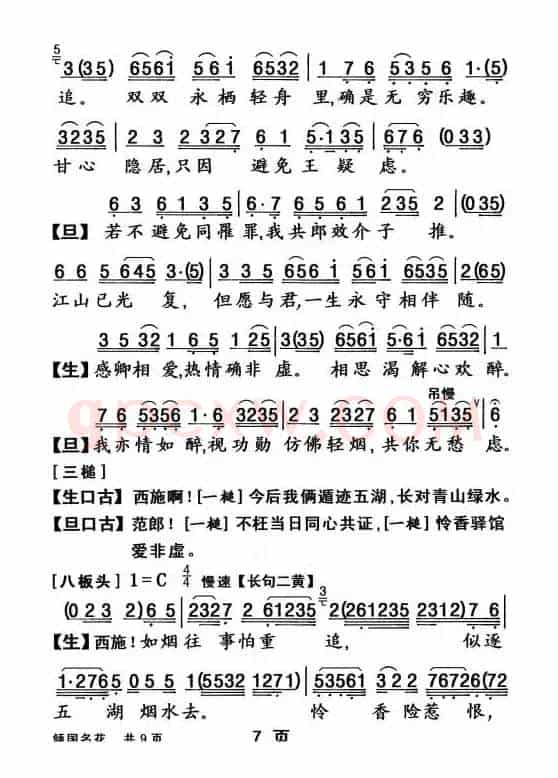 5
3(35) 6561 561 6532 | 1 7 6 5356 1·(5)
追。 双双 永栖轻舟 里,确是无 穷乐趣。
3235 | 2 3 2 327 6 1 5·135 | 676 (033)
甘心 隐居,只因 避免王疑 虑。
6 3 6 1 3 5 | 6·7 6 5 6 1 235 2 | (035)
【旦】若不避免同罹罪,我共郎效介子 推。
6 6 5 645 3·(5) | 3 235 6561 61 6535 | 2(65)
江山已光 复, 但愿与君,一生永守相伴 随。
3 5 32 1 6 5 1 25 | 3(35) 6561 561 6532 | 1
【生】感卿相 爱,热情确非 虚。 相思 渴 解心欢 醉。
吊慢
7 6 5356 1·6 3235 | 2 2327 6 1 5135 | 6
【旦】我亦情如醉,视功勋 仿佛轻烟,共你无愁 虑。
[三槌]
【生口古】西施啊![一槌]今后我俩遁迹五湖,长对青山绿水。
【旦口古】范郎![一槌]不枉当日同心共证,[一槌]怜香驿馆
爱非虚。
[八板头] 1=C 4/4 慢速【长句二黄】
3
(023 2)65 | 2327 2 61235 2(261235 2312)7 6 |
【生】西施!如烟往 事怕重 追, 似逐
1·2765 0 5 5 1(5532 1271) | 53561 3 22 76726(72
五 湖烟水去。 怜 香险惹 恨,
共9页 7 页
gpcxw.COM